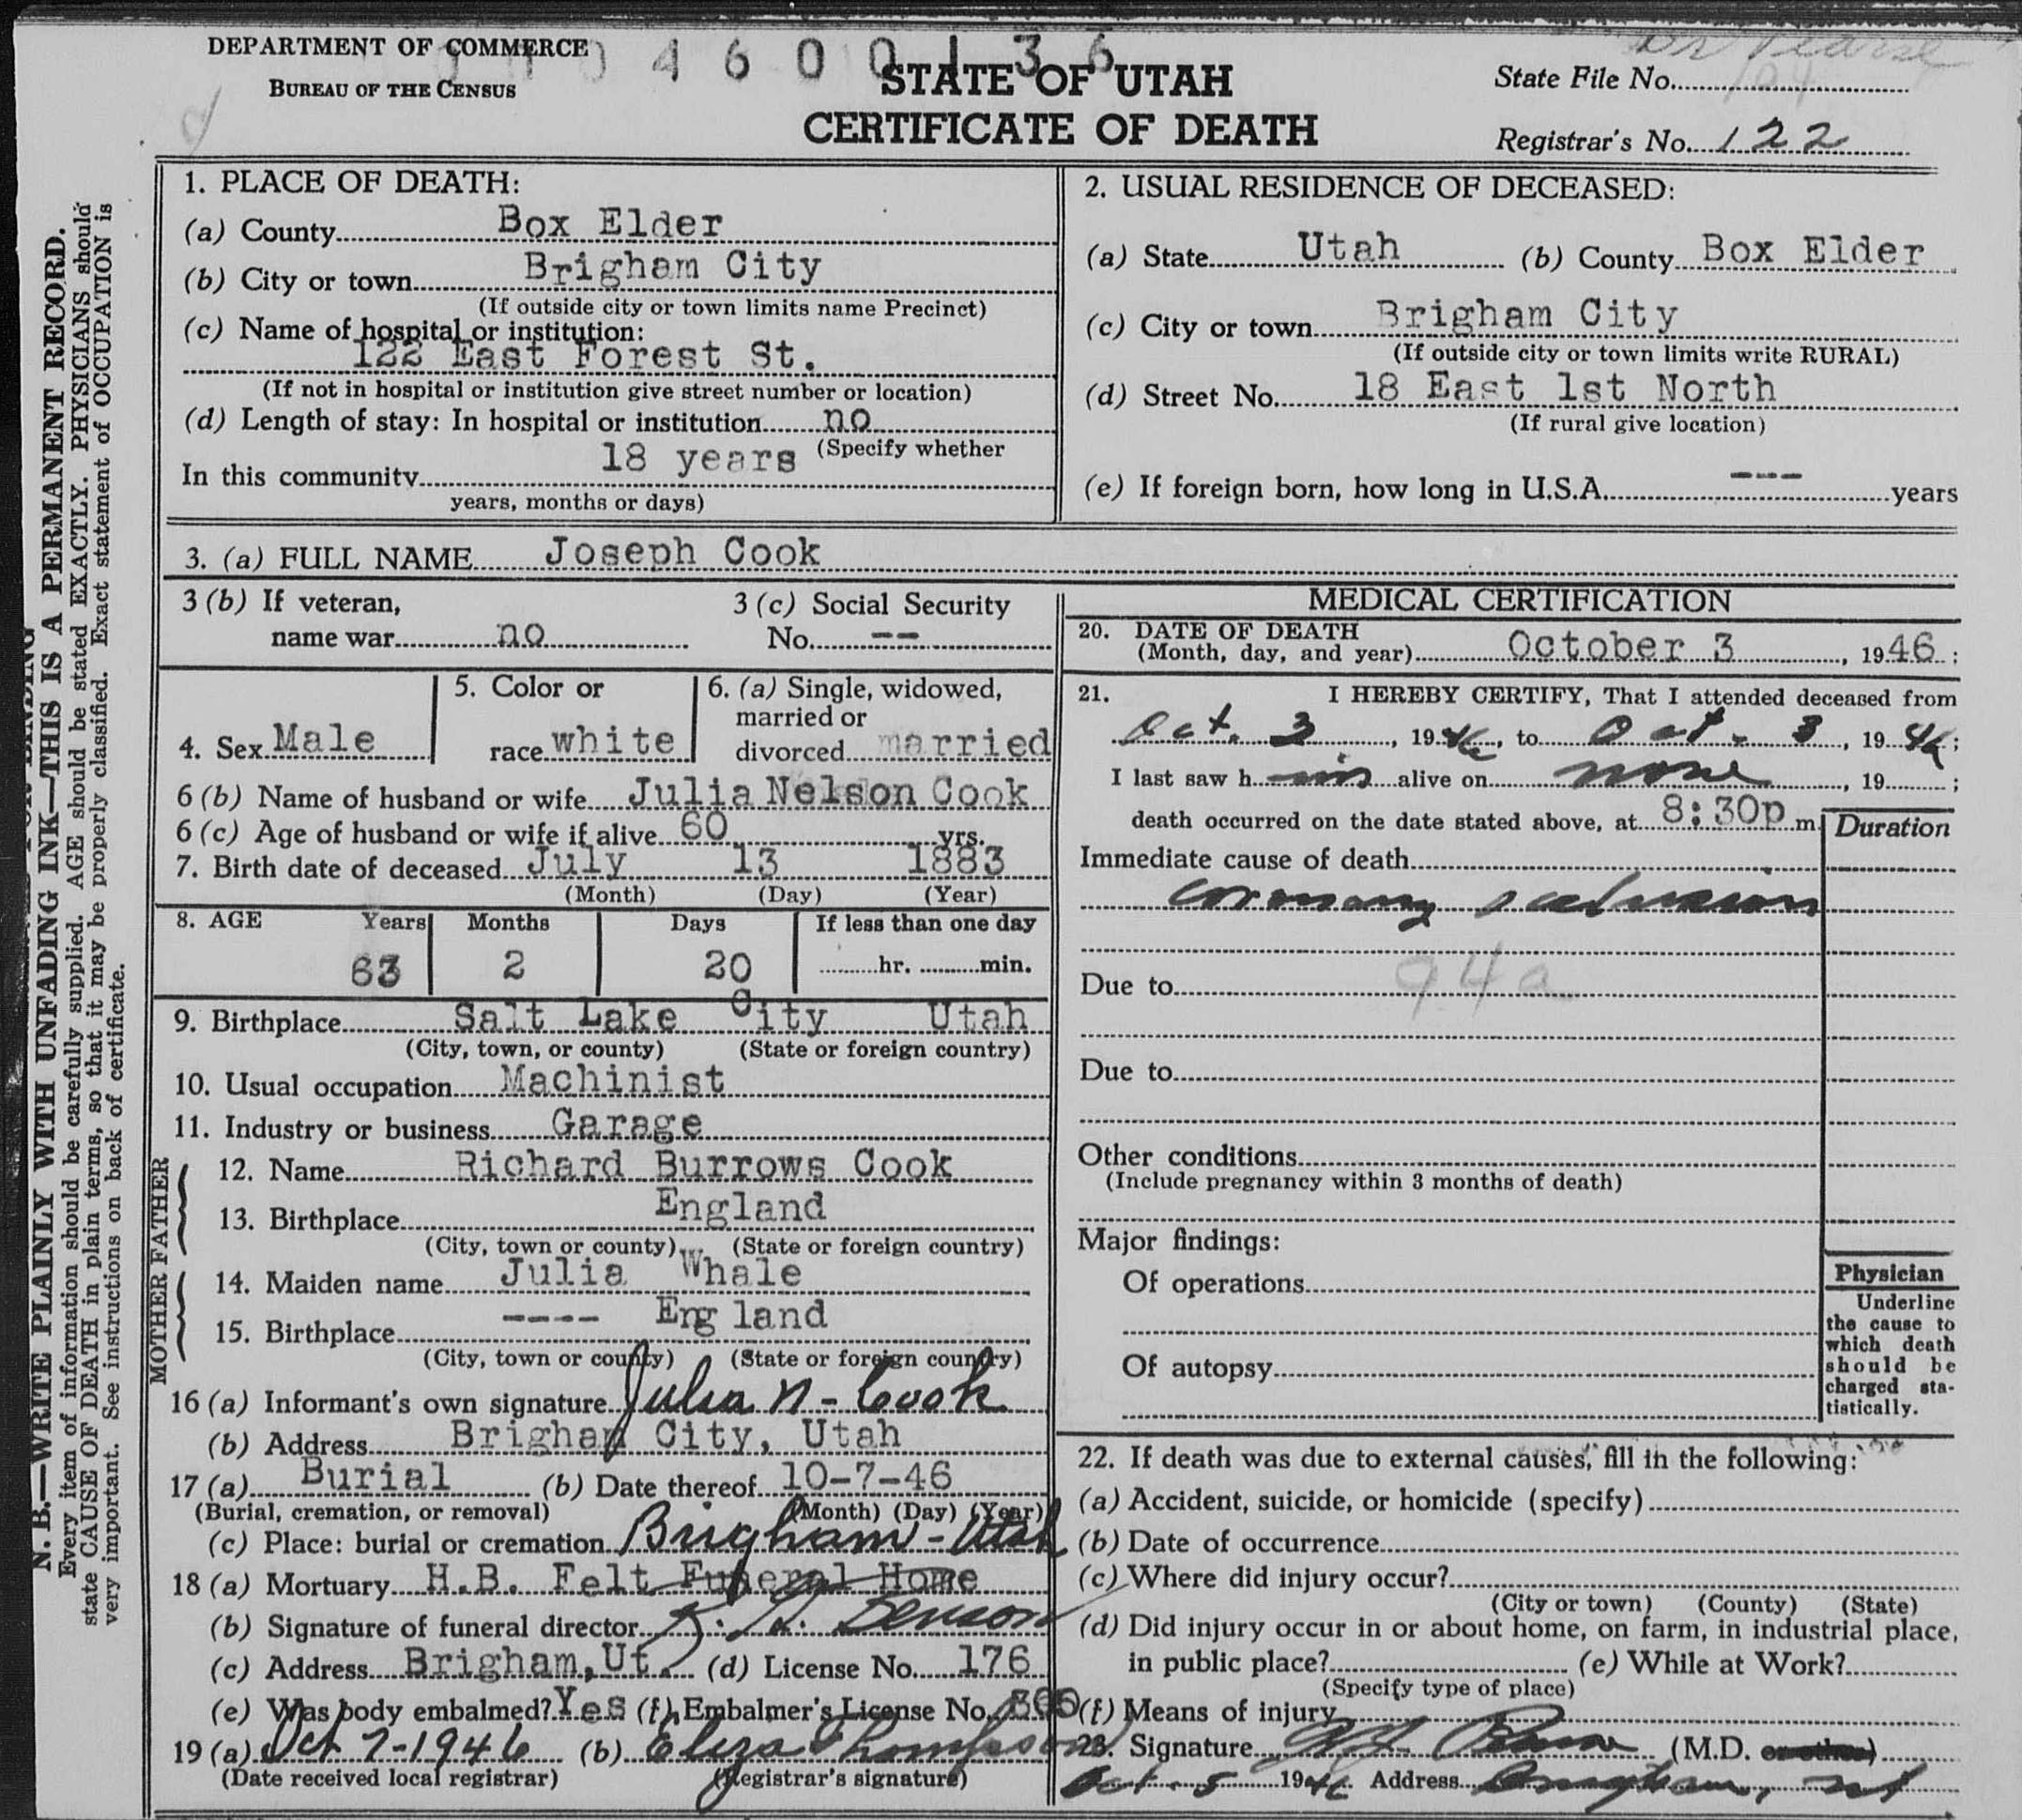 DEPARTMENT OF COMMERCE
BUREAU OF THE CENSUS
4 6 0 0 1 3 6
STATE OF UTAH
CERTIFICATE OF DEATH
Dr Pearse
State File No.
Registrar's No. 122
N. B.—WRITE PLAINLY WITH UNFADING INK—THIS IS A PERMANENT RECORD.
Every item of information should be carefully supplied. AGE should be stated EXACTLY. PHYSICIANS should
state CAUSE OF DEATH in plain terms, so that it may be properly classified. Exact statement of OCCUPATION is
very important. See instructions on back of certificate.
1. PLACE OF DEATH:
(a) County Box Elder
(b) City or town Brigham City
(If outside city or town limits name Precinct)
(c) Name of hospital or institution:
122 East Forest St.
(If not in hospital or institution give street number or location)
(d) Length of stay: In hospital or institution no
(Specify whether
In this community 18 years
years, months or days)
2. USUAL RESIDENCE OF DECEASED:
(a) State Utah (b) County Box Elder
(c) City or town Brigham City
(If outside city or town limits write RURAL)
(d) Street No. 18 East 1st North
(If rural give location)
(e) If foreign born, how long in U.S.A. --- years
3. (a) FULL NAME Joseph Cook
3 (b) If veteran,
name war no
3 (c) Social Security
No. --
4. Sex Male
5. Color or
race white
6. (a) Single, widowed,
married or
divorced married
6 (b) Name of husband or wife Julia Nelson Cook
6 (c) Age of husband or wife if alive 60 yrs.
7. Birth date of deceased July 13 1883
(Month) (Day) (Year)
8. AGE Years Months Days If less than one day
63 2 20 hr. min.
9. Birthplace Salt Lake City Utah
(City, town, or county) (State or foreign country)
10. Usual occupation Machinist
11. Industry or business Garage
FATHER
12. Name Richard Burrows Cook
13. Birthplace England
(City, town or county) (State or foreign country)
MOTHER
14. Maiden name Julia Whale
15. Birthplace ---- Eng land
(City, town or county) (State or foreign country)
16 (a) Informant's own signature Julia N - Cook
(b) Address Brigham City, Utah
17 (a) Burial (b) Date thereof 10-7-46
(Burial, cremation, or removal) (Month) (Day) (Year)
(c) Place: burial or cremation Brigham - Utah
18 (a) Mortuary H.B. Felt Funeral Home
(b) Signature of funeral director
(c) Address Brigham, Ut. (d) License No. 176
(e) Was body embalmed? Yes (f) Embalmer's License No.
19 (a) Oct 7-1946 (b) Eliza Thompson
(Date received local registrar) (Registrar's signature)
MEDICAL CERTIFICATION
20. DATE OF DEATH
(Month, day, and year) October 3, 1946;
21. I HEREBY CERTIFY, That I attended deceased from
Oct. 3, 1946, to Oct. 3, 1946;
I last saw h im alive on none, 19 ;
death occurred on the date stated above, at 8:30p m.
Duration
Immediate cause of death
coronary occlusion
Due to 94a
Due to
Other conditions
(Include pregnancy within 3 months of death)
Major findings:
Of operations
Of autopsy
Physician
Underline
the cause to
which death
should be
charged sta-
tistically.
22. If death was due to external causes, fill in the following:
(a) Accident, suicide, or homicide (specify)
(b) Date of occurrence
(c) Where did injury occur?
(City or town) (County) (State)
(d) Did injury occur in or about home, on farm, in industrial place,
in public place? (e) While at Work?
(Specify type of place)
(f) Means of injury
23. Signature (M.D. or other)
Oct. 5 1946 Address Brigham, Ut